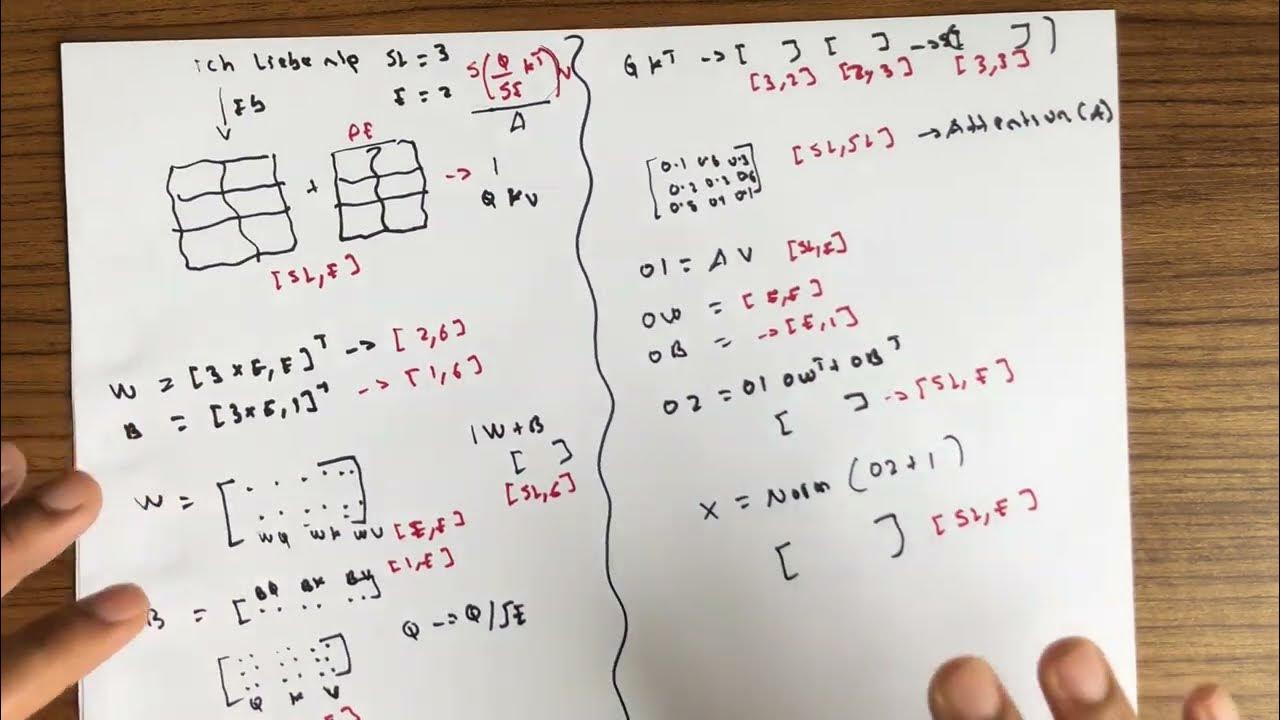 ich liebe nlp SL = 3
E = 2
S(Q/√E Kᵀ)V
A
Eb
PE
+ -> I
Q K V
[SL,E]
W = [3×E,E]ᵀ -> [2,6]
B = [3×E,1]ᵀ -> [1,6]
IW+B
[ ]
[SL,6]
W = [ ]
WQ WK WV [E,E]
BQ BK BV [1,E]
B = [ ]
Q -> Q/√E
[ ]
Q K V
QKᵀ -> [ ] [ ] -> S( [ ] )
[3,2] [2,3] [3,3]
[SL,SL] -> Attention(A)
O1 = AV [SL,E]
OW = [E,E]
OB = -> [E,1]
O2 = O1 OWᵀ + OBᵀ
[ ] -> [SL,E]
X = Norm (O2+I)
[ ] [SL,E]